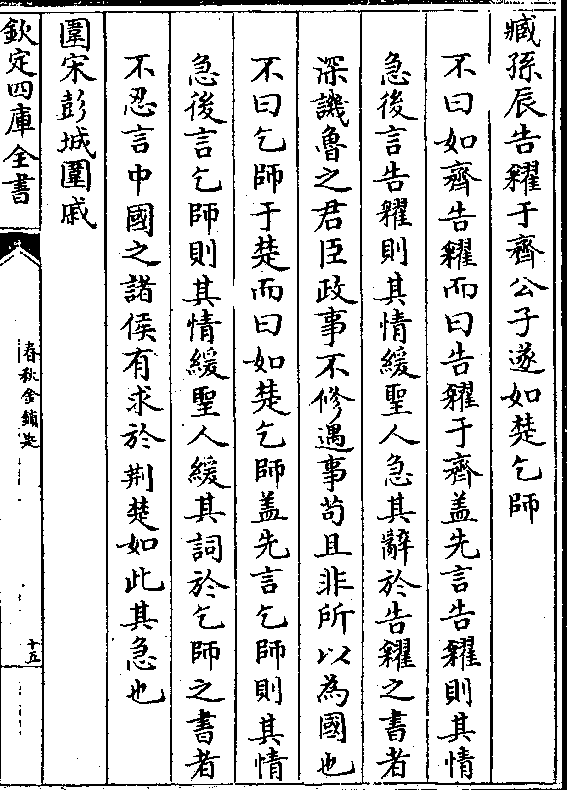 臧孫辰告糴于齊公子遂如楚乞師
不曰如齊告糴而曰告糴于齊盖先言告糴則其情
急後言告糴則其情緩聖人急其辭於告糴之書者
深譏魯之君臣政事不修遇事苟且非所以為國也
不曰乞師于楚而曰如楚乞師盖先言乞師則其情
急後言乞師則其情緩聖人緩其詞於乞師之書者
不忍言中國之諸侯有求於荆楚如此其急也
圍宋彭城圍戚
欽定四庫全書
春秋金鎖匙
十五